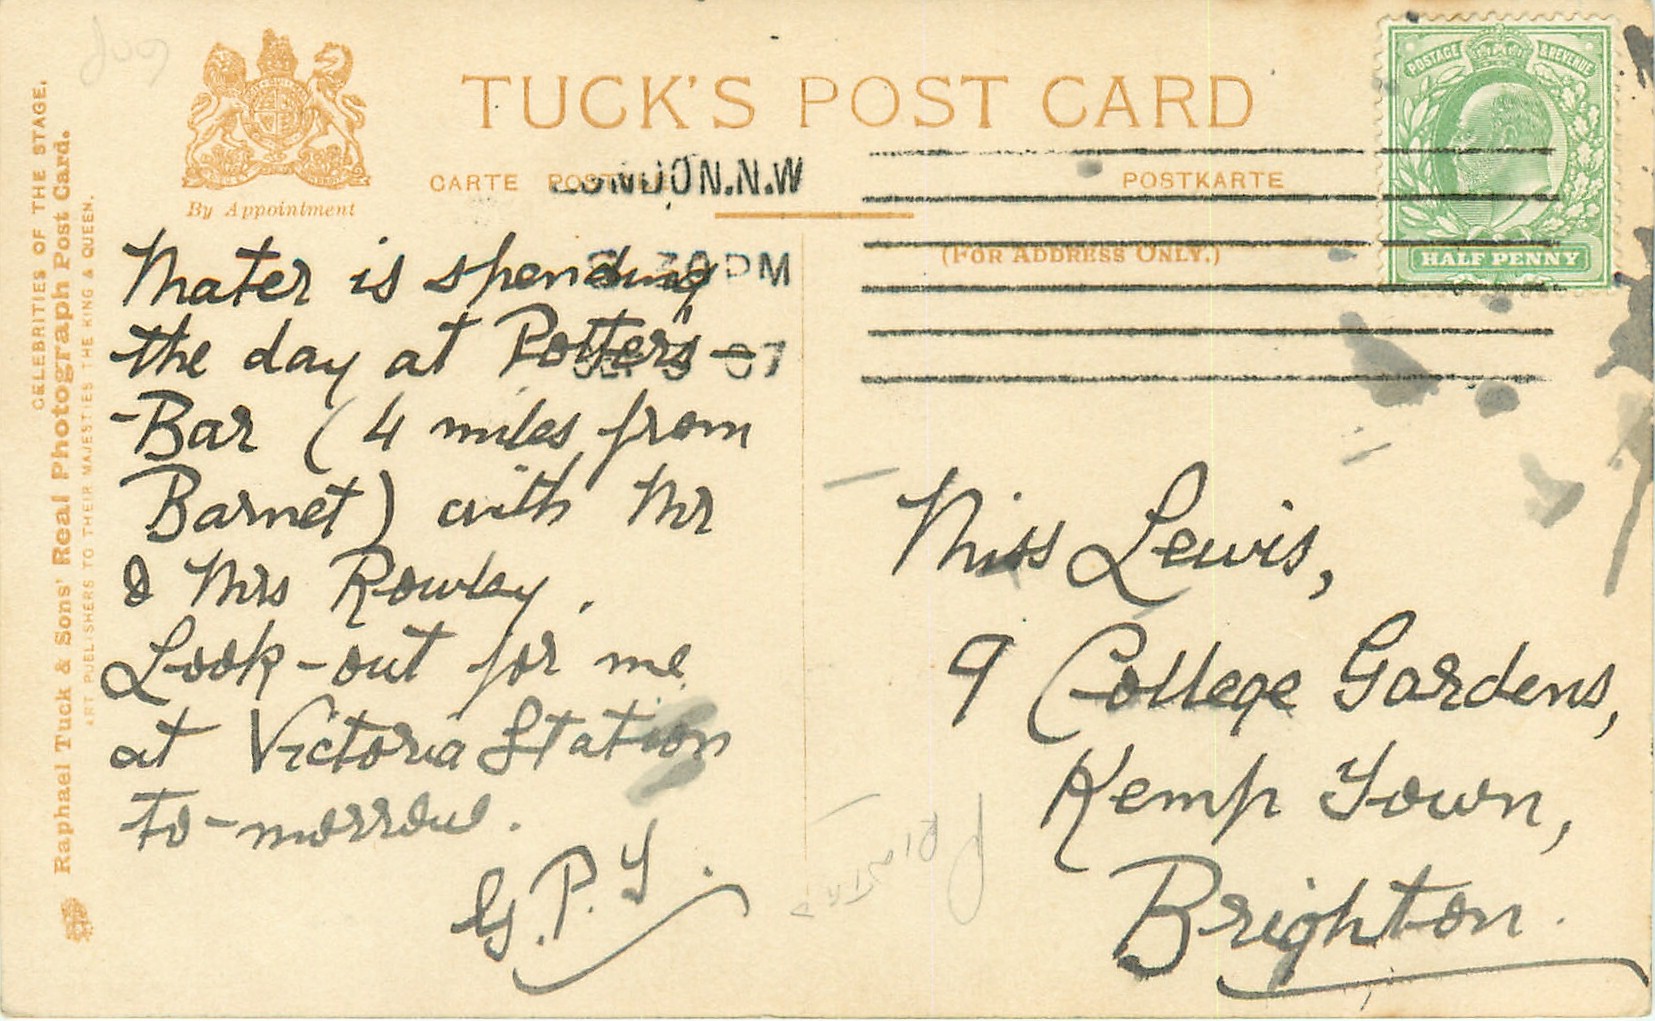 TUCK'S POST CARD
CARTE POSTALE
POSTKARTE
(FOR ADDRESS ONLY.)
By Appointment
CELEBRITIES OF THE STAGE.
Raphael Tuck & Sons' Real Photograph Post Card.
ART PUBLISHERS TO THEIR MAJESTIES THE KING & QUEEN.
POSTAGE & REVENUE
HALF PENNY
LONDON.N.W
30 PM
07
Mater is spending
the day at Potters-
-Bar (4 miles from
Barnet) with Mr
& Mrs Rowley.
Look-out for me
at Victoria Station
to-morrow.
G.P.Y.
Miss Lewis,
9 College Gardens,
Kemp Town,
Brighton.